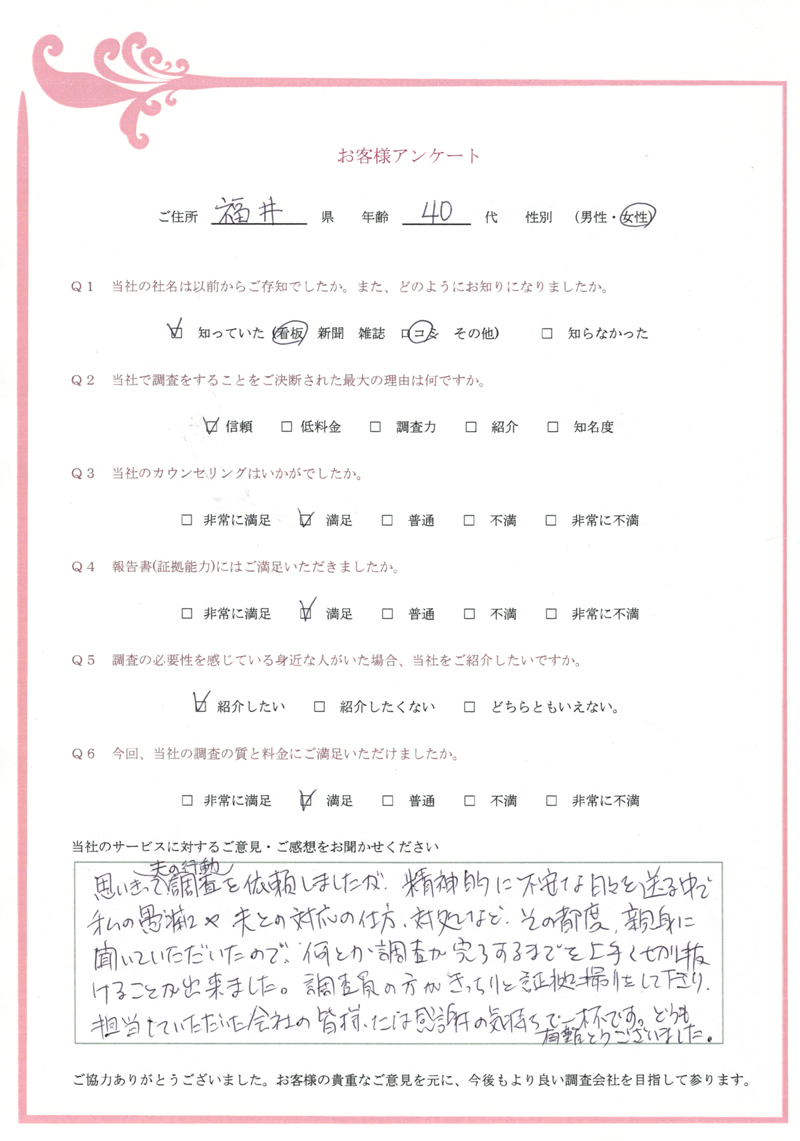 お客様アンケート
ご住所 福井 県 年齢 40 代 性別 (男性・女性)
Q1 当社の社名は以前からご存知でしたか。また、どのようにお知りになりましたか。
☑ 知っていた (看板 新聞 雑誌 口コミ その他) □ 知らなかった
Q2 当社で調査をすることをご決断された最大の理由は何ですか。
☑ 信頼 □ 低料金 □ 調査力 □ 紹介 □ 知名度
Q3 当社のカウンセリングはいかがでしたか。
□ 非常に満足 ☑ 満足 □ 普通 □ 不満 □ 非常に不満
Q4 報告書(証拠能力)にはご満足いただきましたか。
□ 非常に満足 ☑ 満足 □ 普通 □ 不満 □ 非常に不満
Q5 調査の必要性を感じている身近な人がいた場合、当社をご紹介したいですか。
☑ 紹介したい □ 紹介したくない □ どちらともいえない。
Q6 今回、当社の調査の質と料金にご満足いただけましたか。
□ 非常に満足 ☑ 満足 □ 普通 □ 不満 □ 非常に不満
当社のサービスに対するご意見・ご感想をお聞かせください
夫の行動
思いきって調査を依頼しましたが、精神的に不安な日々を送る中で
私の愚痴や夫との対応の仕方、対処など、その都度、親身に
聞いていただいたので、何とか調査が完了するまでを上手く切り抜
けることが出来ました。調査員の方がきっちりと証拠撮りをして下さり、
担当していただいた会社の皆様には感謝の気持ちで一杯です。どうも
有難とうございました。
ご協力ありがとうございました。お客様の貴重なご意見を元に、今後もより良い調査会社を目指して参ります。